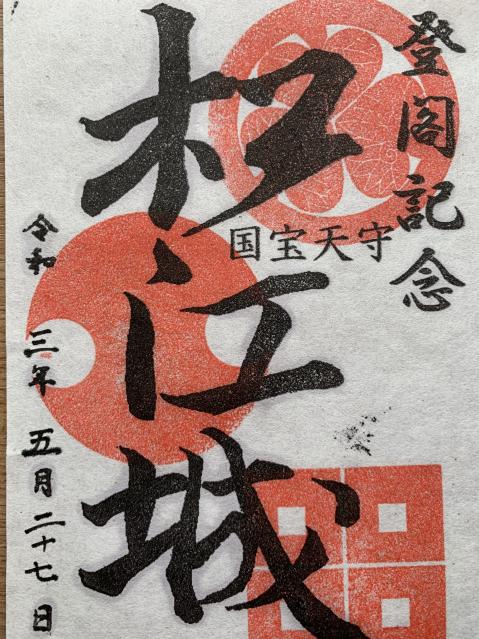 登閣記念
国宝天守
松江城
令和三年五月二十七日